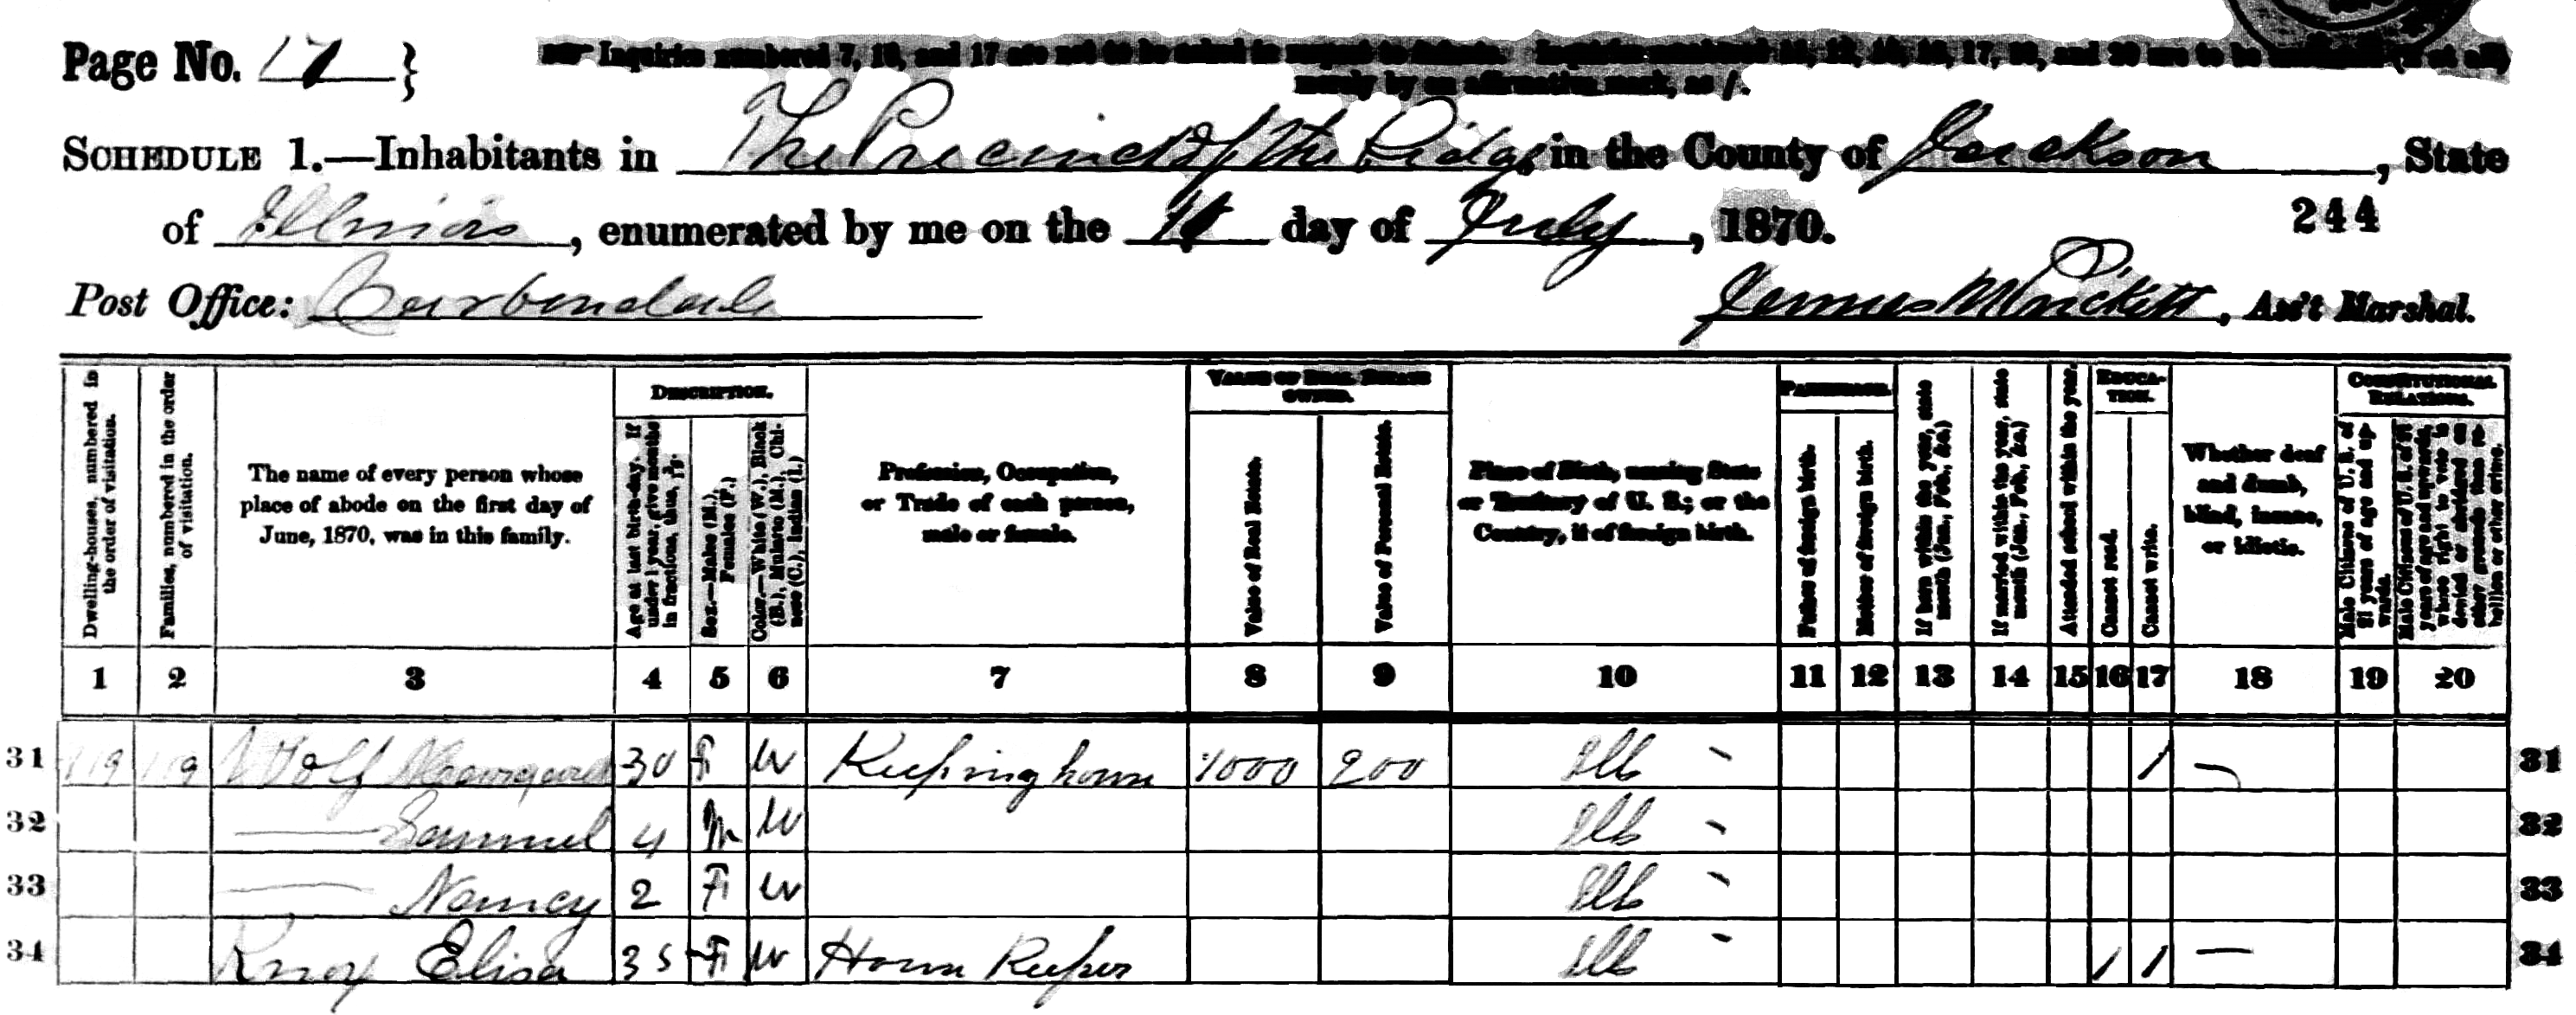 Page No. 17
Inquiries numbered 7, 16, and 17 are not to be asked in respect to infants. Inquiries numbered 11, 12, 15, 16, 17, 19, and 20 are to be answered (if at all)
merely by an affirmative mark, as /.
SCHEDULE 1.—Inhabitants in The Precinct of the Ridge, in the County of Jackson, State
of Illinois, enumerated by me on the day of July, 1870. 244
Post Office: Carbondale James M Prickett, Ass't Marshal.
DESCRIPTION. VALUE OF REAL ESTATE OWNED. PARENTAGE. EDUCATION. CONSTITUTIONAL RELATIONS.
Dwelling-houses, numbered in the order of visitation.
Families, numbered in the order of visitation.
The name of every person whose place of abode on the first day of June, 1870, was in this family.
Age at last birth-day. If under 1 year, give months in fractions, thus,
Sex.—Males (M.), Females (F.)
Color.—White (W.), Black (B.), Mulatto (M.), Chinese (C.), Indian (I.)
Profession, Occupation, or Trade of each person, male or female.
Value of Real Estate.
Value of Personal Estate.
Place of Birth, naming State or Territory of U. S.; or the Country, if of foreign birth.
Father of foreign birth.
Mother of foreign birth.
If born within the year, state month (Jan., Feb., &c.)
If married within the year, state month (Jan., Feb., &c.)
Attended school within the year.
Cannot read.
Cannot write.
Whether deaf and dumb, blind, insane, or idiotic.
Male Citizens of U. S. of 21 years of age and upwards.
Male Citizens of U. S. of 21 years of age and upwards, whose right to vote is denied or abridged on other grounds than rebellion or other crime.
1 2 3 4 5 6 7 8 9 10 11 12 13 14 15 16 17 18 19 20
31 119 119 Wolf 30 F W Keeping house 1000 200 Ills / 31
32 —— Samuel 4 M W Ills 32
33 —— Nancy 2 F W Ills 33
34 Knox Elisa 35 F W House Keeper Ills / / — 34